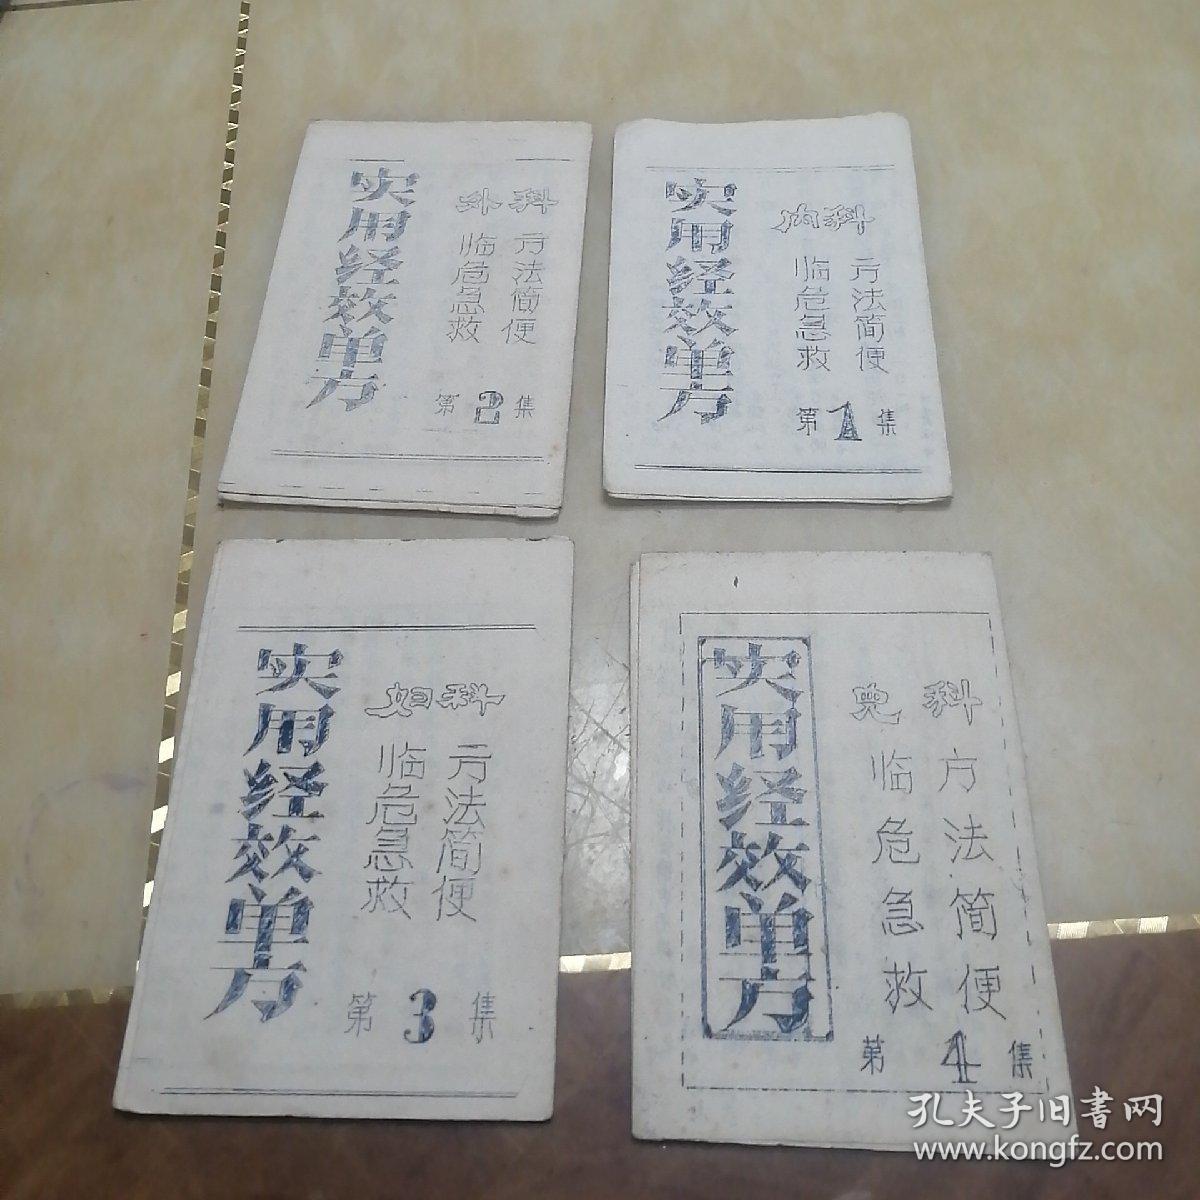 实用经效单方
外科
方法简便
临危急救
第2集
实用经效单方
内科
方法简便
临危急救
第1集
实用经效单方
妇科
方法简便
临危急救
第3集
实用经效单方
儿科
方法简便
临危急救
第4集
孔夫子旧書网
www.kongfz.com